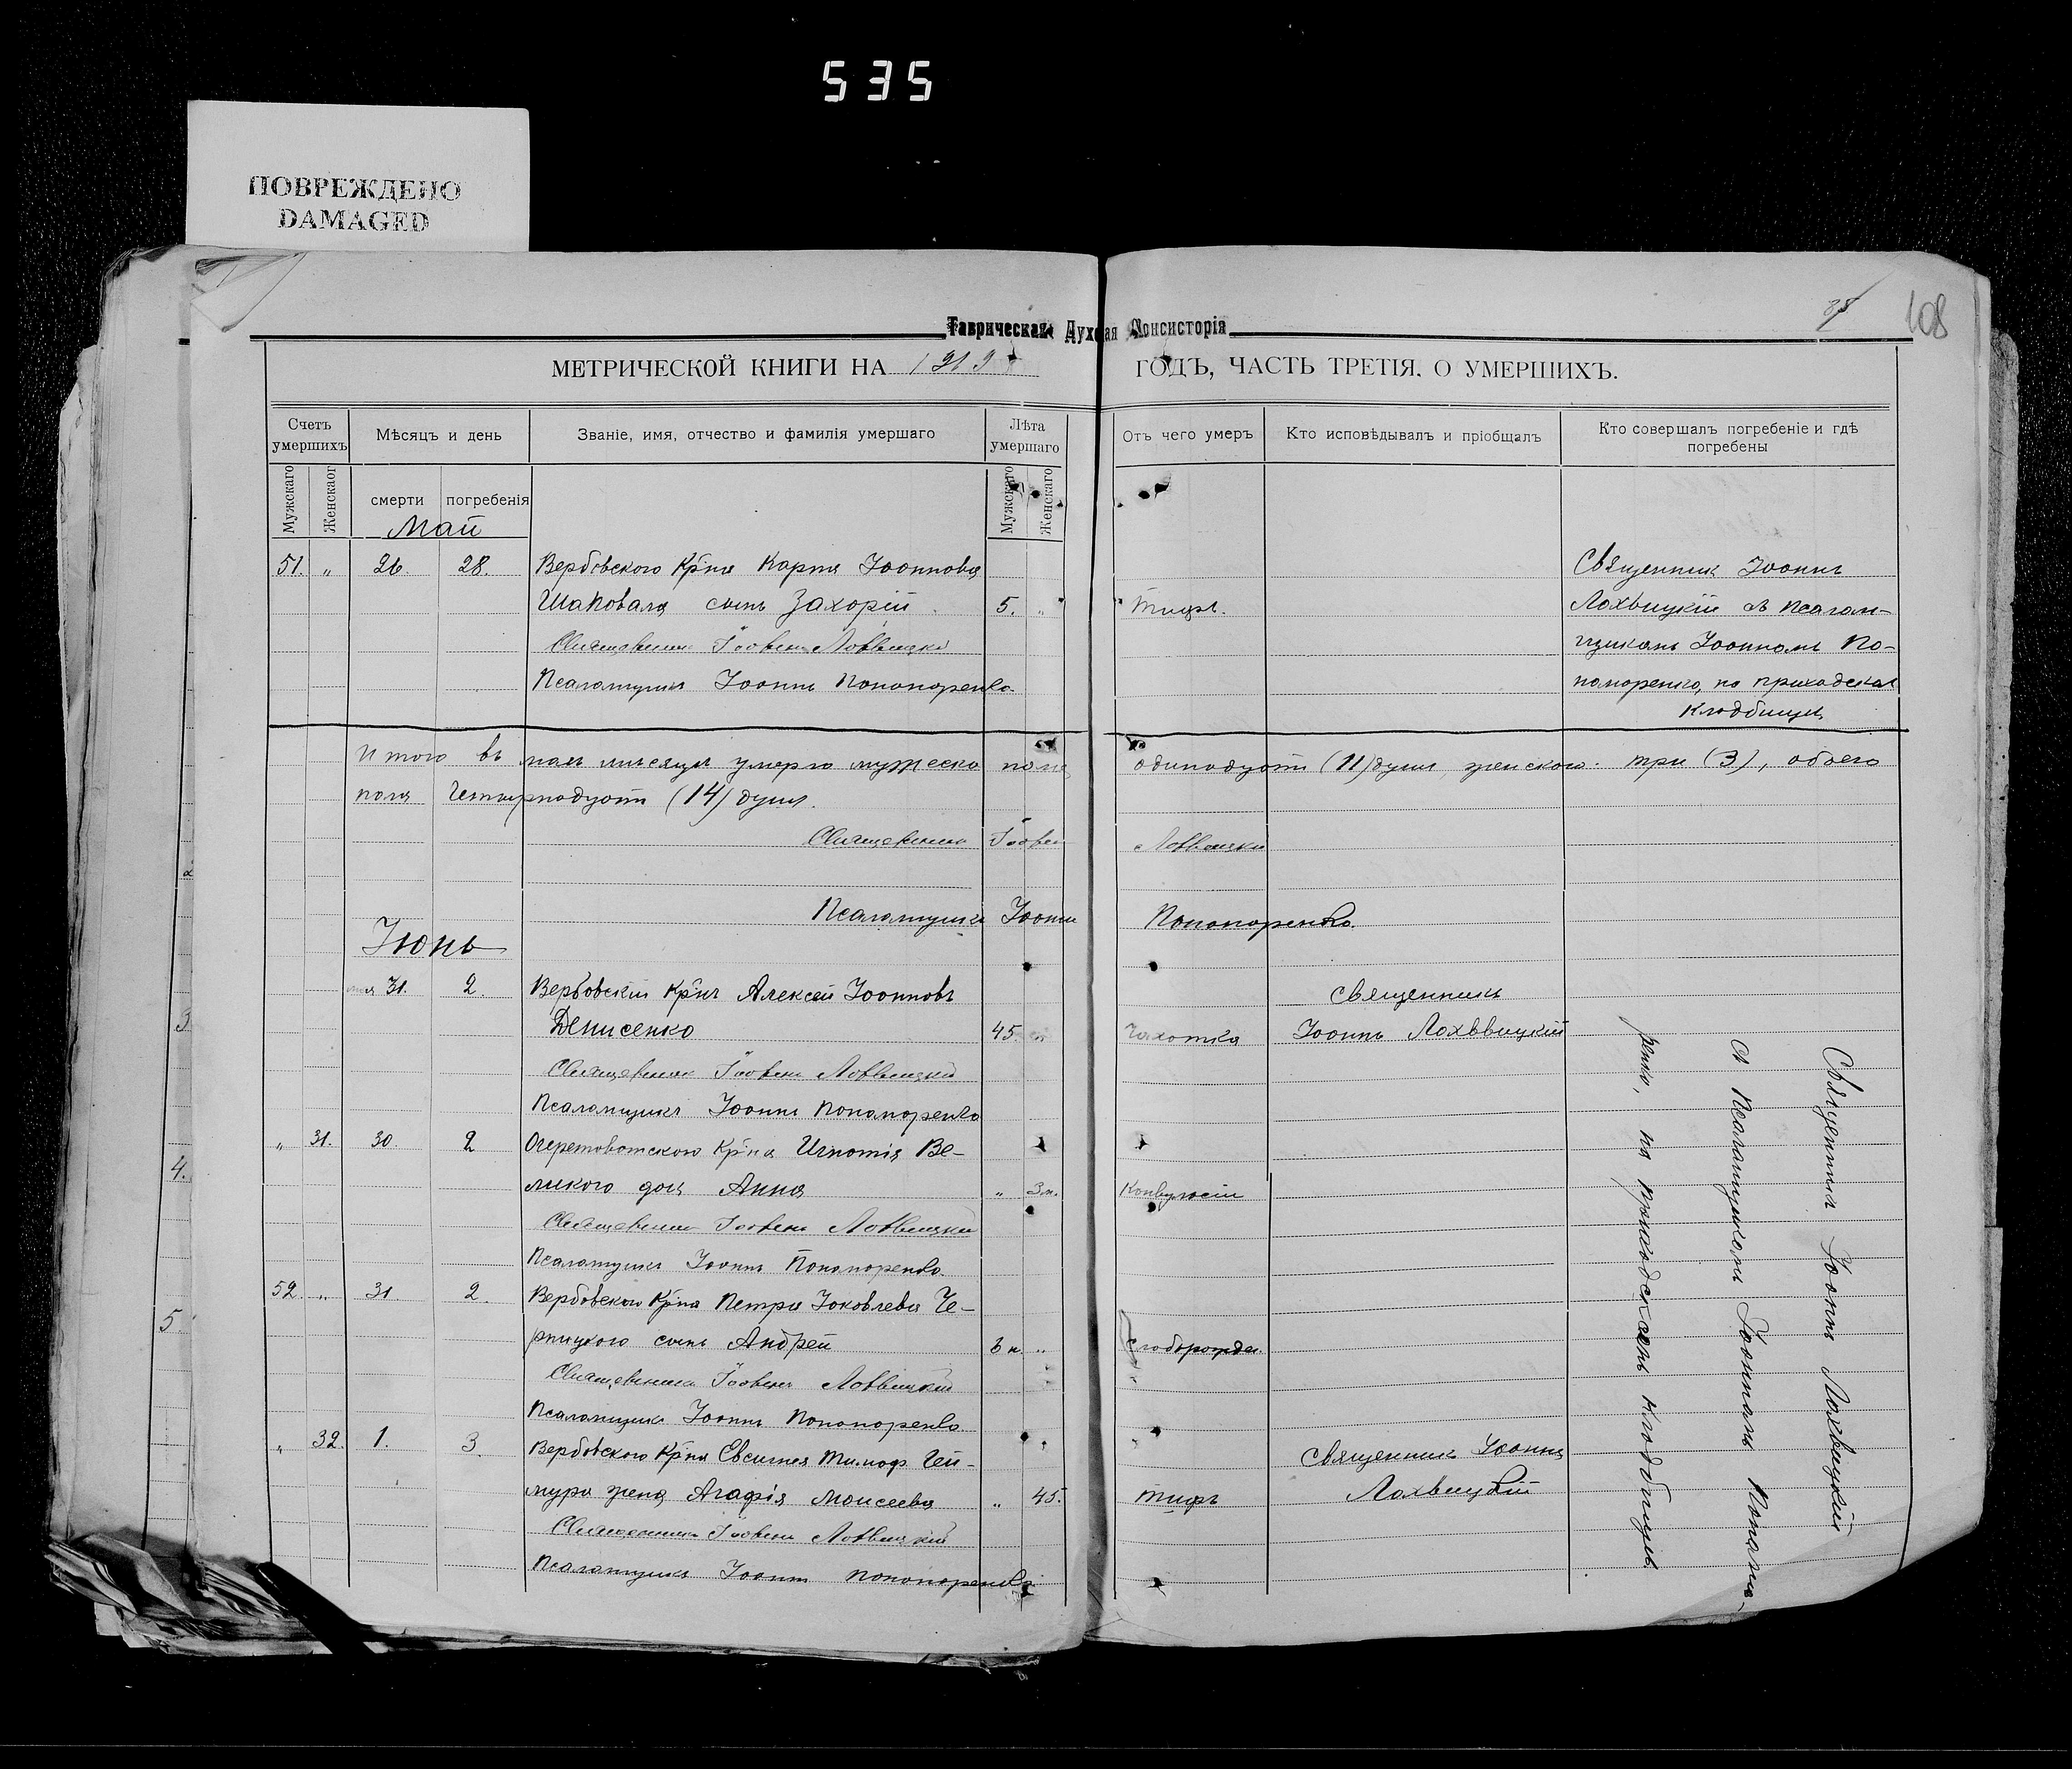 535
ПОВРЕЖДЕНО
DAMAGED
108
Таврическая Духовная Консисторія
МЕТРИЧЕСКОЙ КНИГИ НА 1919 ГОДЪ, ЧАСТЬ ТРЕТІЯ, О УМЕРШИХЪ.
Счетъ умершихъ
Мѣсяцъ и день
Званіе, имя, отчество и фамилія умершаго
Лѣта умершаго
Отъ чего умеръ
Кто исповѣдывалъ и пріобщалъ
Кто совершалъ погребеніе и гдѣ погребены
Мужскаго
Женскаог
смерти
погребенія
Мужскаго
Женскаго
Май
51. „ 26. 28. Вербовского Кр-на Карпа Іоаннова Священникъ Іоаннъ
Шаповала сынъ Захарій 5. „ Тифъ. Лохвицкій съ Псалом-
Священникъ Іоаннъ Лохвицкій щикомъ Іоанномъ По-
Псаломщикъ Іоаннъ Пономаренко номаренко, на приходскомъ
кладбищѣ
Итого въ маѣ мѣсяцѣ умерло мужеска пола одинадцать (11) душъ, женскаго три (3), обоего
пола четырнадцать (14) душъ.
Священникъ Іоаннъ Лохвицкій
Псаломщикъ Іоаннъ Пономаренко.
Іюнь
мая 31. 2. Вербовскій Кр-нъ Алексей Іоанновъ Священникъ
Денисенко 45 Чахотка Іоаннъ Лохввицкій
Священникъ Іоаннъ Лохвицкій
Псаломщикъ Іоаннъ Пономаренко
„ 31. 30. 2 Очеретоватского Кр-на Игнатія Ве-
ликого дочь Анна „ 3 м. Конвульсіи
Священникъ Іоаннъ Лохвицкій
Псаломщикъ Іоаннъ Пономаренко.
52. „ 31 2. Вербовского Кр-на Петра Яковлева Че-
рницкого сынъ Андрей 3 н. „ Слаборожден.
Священникъ Іоаннъ Лохвицкій
Псаломщикъ Іоаннъ Пономаренко
„ 32. 1. 3. Вербовского Кр-на Евсигнея Тимоф. Гей- Священникъ Іоаннъ
мура жена Агафія Моисеева „ 45. Тифъ Лохвицкій
Священникъ Іоаннъ Лохвицкій
Псаломщикъ Іоаннъ Пономаренко
Священникъ Іоаннъ Лохвицкій
съ Псаломщикомъ Іоанномъ Понома-
ренко, на приходскомъ кладбищѣ.
2
3
4.
5.